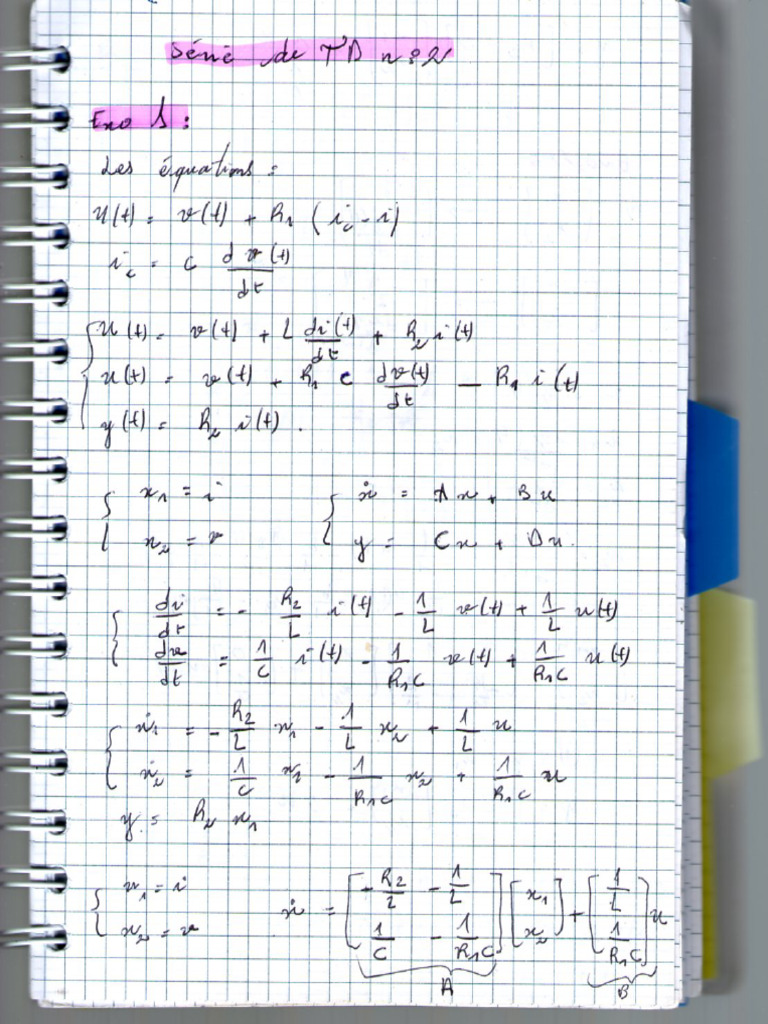 Série de TD n°2
Exo 1 :
Les équations :
u(t) = v(t) + R₁ (i_c - i)
i_c = C dv(t)/dt
{ u(t) = v(t) + L di(t)/dt + R₂ i(t)
u(t) = v(t) + R₁ C dv(t)/dt - R₁ i(t)
y(t) = R₂ i(t).
{ x₁ = i { ẋ = Ax + Bu
x₂ = v y = Cx + Du.
{ di/dt = - R₂/L i(t) - 1/L v(t) + 1/L u(t)
dv/dt = 1/C i(t) - 1/R₁C v(t) + 1/R₁C u(t)
{ ẋ₁ = - R₂/L x₁ - 1/L x₂ + 1/L u
ẋ₂ = 1/C x₁ - 1/R₁C x₂ + 1/R₁C u
y = R₂ x₁
{ x₁ = i ẋ = [ -R₂/L -1/L ] [ x₁ ] + [ 1/L ] u
x₂ = v [ 1/C -1/R₁C ] [ x₂ ] [ 1/R₁C ]
A B